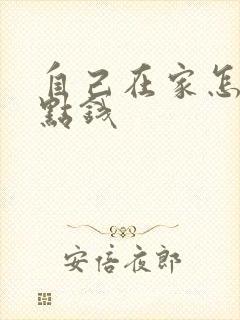 自己在家怎
點錢
安倍夜郎